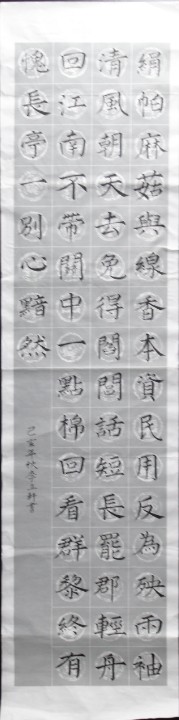 絹帕麻菇與線香本資民用反為殃兩袖
清風朝天去免得閭閻話短長罷郡輕舟
回江南不帶關中一點棉回看群黎終有
愧長亭一別心黯然
己亥年秋李立軒書